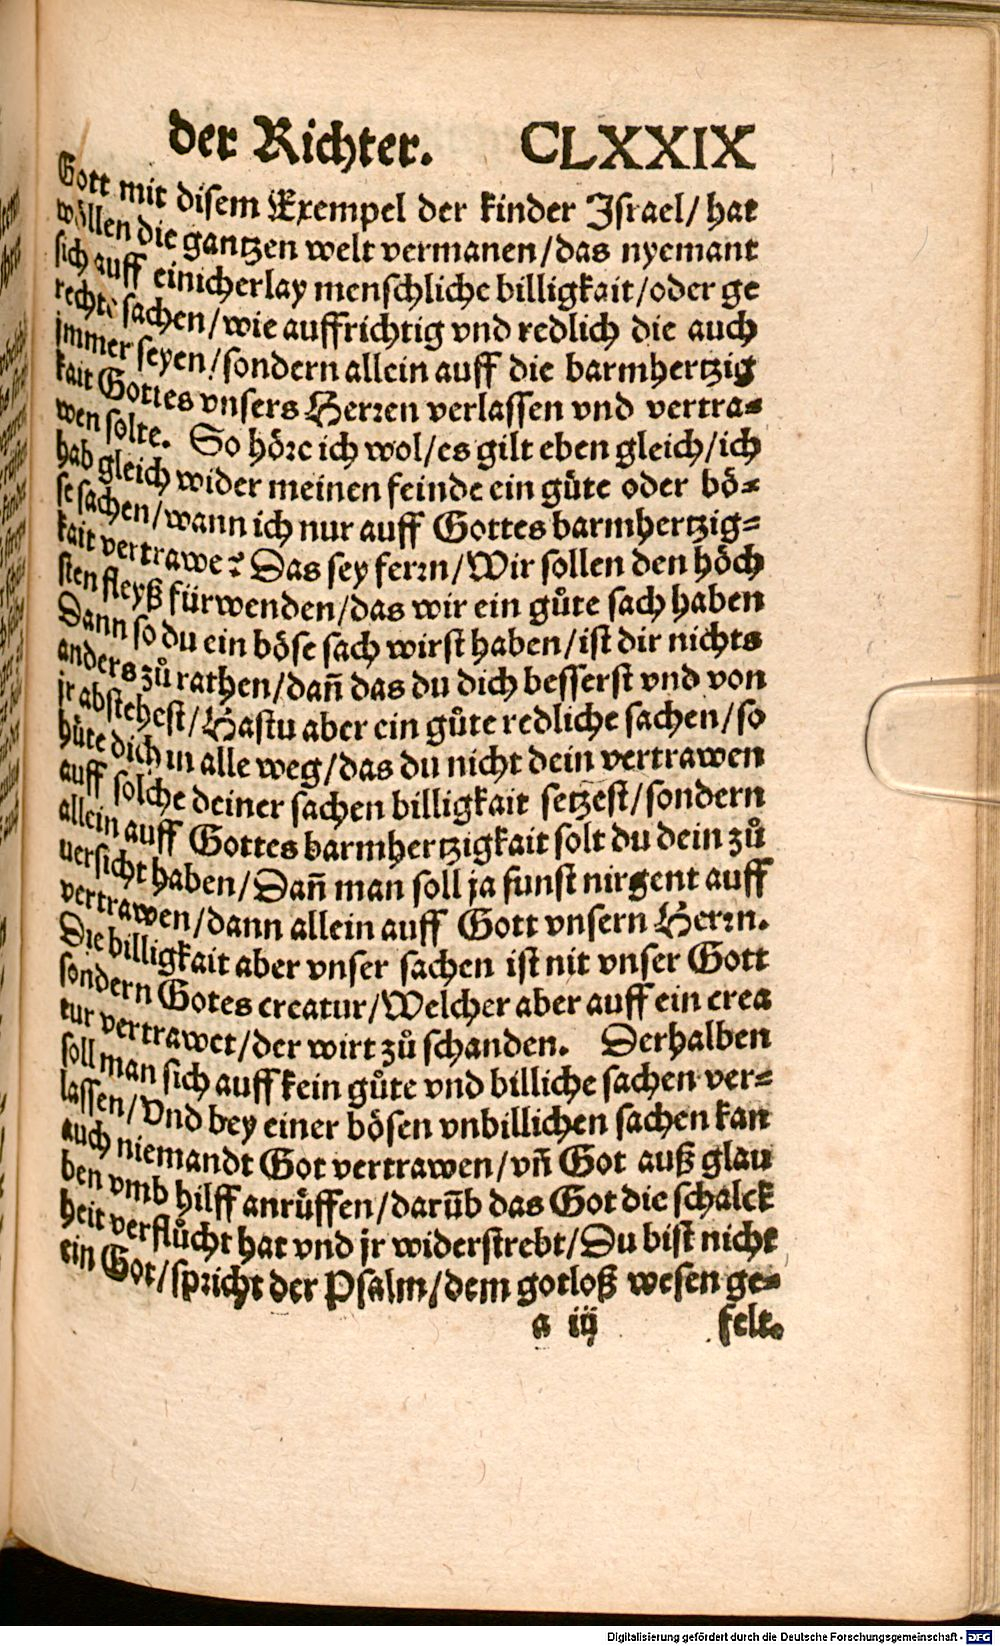 der Richter. CLXXIX
Gott mit disem Exempel der kinder Israel/ hat
wöllen die gantzen welt vermanen/das nyemant
sich auff einicherlay menschliche billigkait/oder ge
rechte sachen/wie auffrichtig vnd redlich die auch
jmmer seyen/sondern allein auff die barmhertzig
kait Gottes vnsers Herren verlassen vnd vertra⸗
wen solte. So höre ich wol/es gilt eben gleich/ich
hab gleich wider meinen feinde ein gůte oder bö⸗
se sachen/wann ich nur auff Gottes barmhertzig⸗
kait vertrawe? Das sey ferrn/Wir sollen den höch
sten fleyß fürwenden/das wir ein gůte sach haben
Dann so du ein böse sach wirst haben/ist dir nichts
anders zů rathen/dañ das du dich besserst vnd von
jr abstehest/Hastu aber ein gůte redliche sachen/so
hüte dich in alle weg/das du nicht dein vertrawen
auff solche deiner sachen billigkait setzest/sondern
allein auff Gottes barmhertzigkait solt du dein zů
uersicht haben/Dañ man soll ja sunst nirgent auff
vertrawen/dann allein auff Gott vnsern Herrn.
Die billigkait aber vnser sachen ist nit vnser Gott
sondern Gotes creatur/Welcher aber auff ein crea
tur vertrawet/der wirt zů schanden. Derhalben
soll man sich auff kein gůte vnd billiche sachen ver⸗
lassen/Vnd bey einer bösen vnbillichen sachen kan
auch niemandt Got vertrawen/vñ Got auß glau
ben vmb hilff anrüffen/darūb das Got die schalck
heit verflůcht hat vnd jr widerstrebt/Du bist nicht
ein Got/spricht der Psalm/dem gotloß wesen ge⸗
a iij felt.
Digitalisierung gefördert durch die Deutsche Forschungsgemeinschaft - DFG